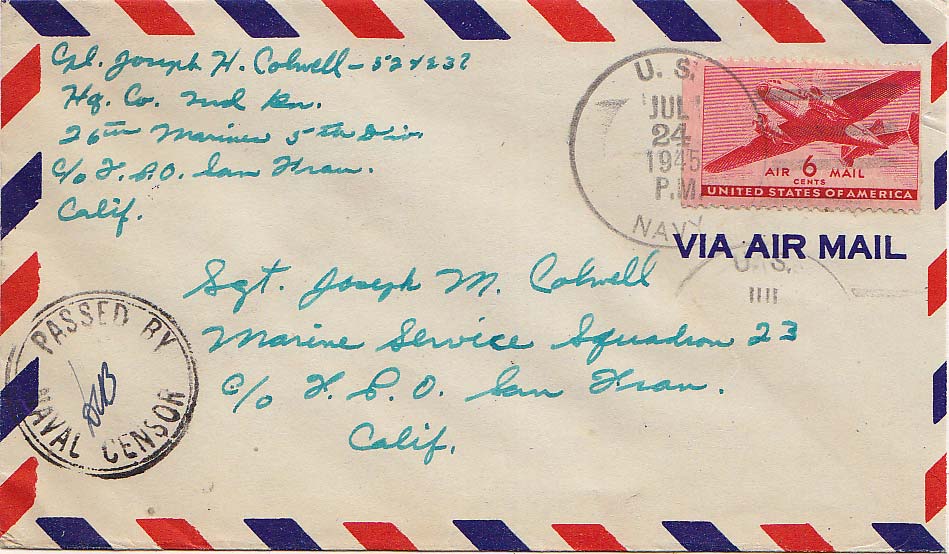 Cpl. Joseph H. Colwell - 524232
Hq. Co. 2nd Bn.
26th Marines 5th Div.
C/o F.P.O. San Fran.
Calif.
U. S.
JUL
24
1945
P.M.
NAVY
AIR 6 MAIL
CENTS
UNITED STATES OF AMERICA
VIA AIR MAIL
U. S.
Sgt. Joseph M. Colwell
Marine Service Squadron 23
C/o F.P.O. San Fran.
Calif.
PASSED BY
NAVAL CENSOR